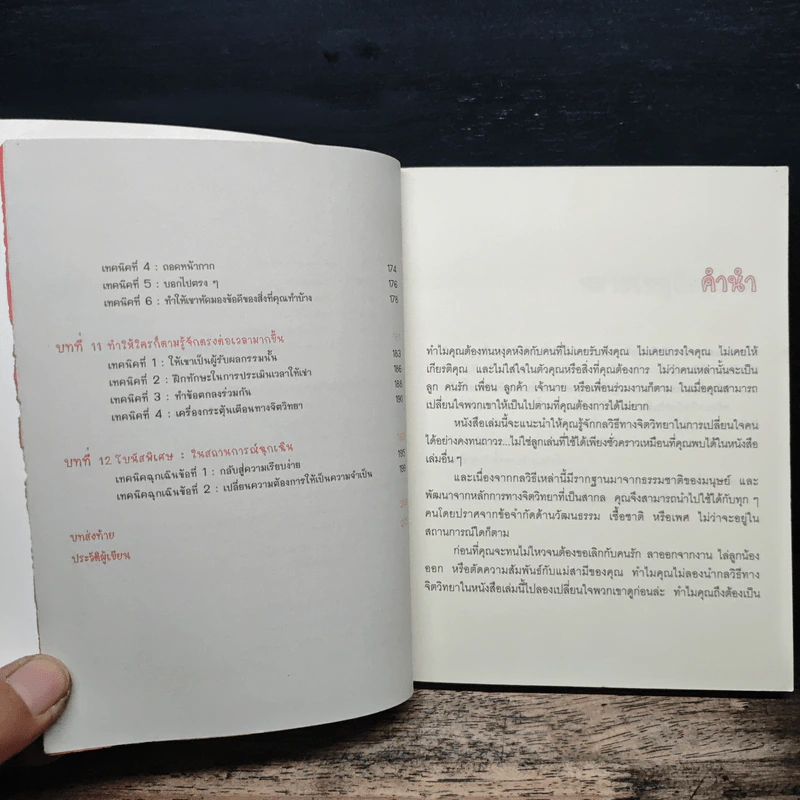 เทคนิคที่ 4 : ถอดหน้ากาก 174
เทคนิคที่ 5 : บอกไปตรง ๆ 176
เทคนิคที่ 6 : ทำให้เขาหัดมองข้อดีของสิ่งที่คุณทำบ้าง 178
บทที่ 11 ทำให้ใครก็ตามรู้จักตรงต่อเวลามากขึ้น
เทคนิคที่ 1 : ให้เขาเป็นผู้รับผลกรรมนั้น 183
เทคนิคที่ 2 : ฝึกทักษะในการประเมินเวลาให้เขา 186
เทคนิคที่ 3 : ทำข้อตกลงร่วมกัน 188
เทคนิคที่ 4 : เครื่องกระตุ้นเตือนทางจิตวิทยา 190
บทที่ 12 โบนัสพิเศษ : ในสถานการณ์ฉุกเฉิน
เทคนิคฉุกเฉินข้อที่ 1 : กลับสู่ความเรียบง่าย 195
เทคนิคฉุกเฉินข้อที่ 2 : เปลี่ยนความต้องการให้เป็นความจำเป็น
บทส่งท้าย
ประวัติผู้เขียน
คำนำ
ทำไมคุณต้องทนหงุดหงิดกับคนที่ไม่เคยรับฟังคุณ ไม่เคยเกรงใจคุณ ไม่เคยให้
เกียรติคุณ และไม่ใส่ใจในตัวคุณหรือสิ่งที่คุณต้องการ ไม่ว่าคนเหล่านั้นจะเป็น
ลูก คนรัก เพื่อน ลูกค้า เจ้านาย หรือเพื่อนร่วมงานก็ตาม ในเมื่อคุณสามารถ
เปลี่ยนใจพวกเขาให้เป็นไปตามที่คุณต้องการได้ไม่ยาก
หนังสือเล่มนี้จะแนะนำให้คุณรู้จักกลวิธีทางจิตวิทยาในการเปลี่ยนใจคน
ได้อย่างคงทนถาวร...ไม่ใช่ลูกเล่นที่ใช้ได้เพียงชั่วคราวเหมือนที่คุณพบได้ในหนังสือ
เล่มอื่น ๆ
และเนื่องจากกลวิธีเหล่านี้มีรากฐานมาจากธรรมชาติของมนุษย์ และ
พัฒนาจากหลักการทางจิตวิทยาที่เป็นสากล คุณจึงสามารถนำไปใช้ได้กับทุก ๆ
คนโดยปราศจากข้อจำกัดด้านวัฒนธรรม เชื้อชาติ หรือเพศ ไม่ว่าจะอยู่ใน
สถานการณ์ใดก็ตาม
ก่อนที่คุณจะทนไม่ไหวจนต้องขอเลิกกับคนรัก ลาออกจากงาน ไล่ลูกน้อง
ออก หรือตัดความสัมพันธ์กับแม่สามีของคุณ ทำไมคุณไม่ลองนำกลวิธีทาง
จิตวิทยาในหนังสือเล่มนี้ไปลองเปลี่ยนใจพวกเขาดูก่อนล่ะ ทำไมคุณถึงต้องเป็น